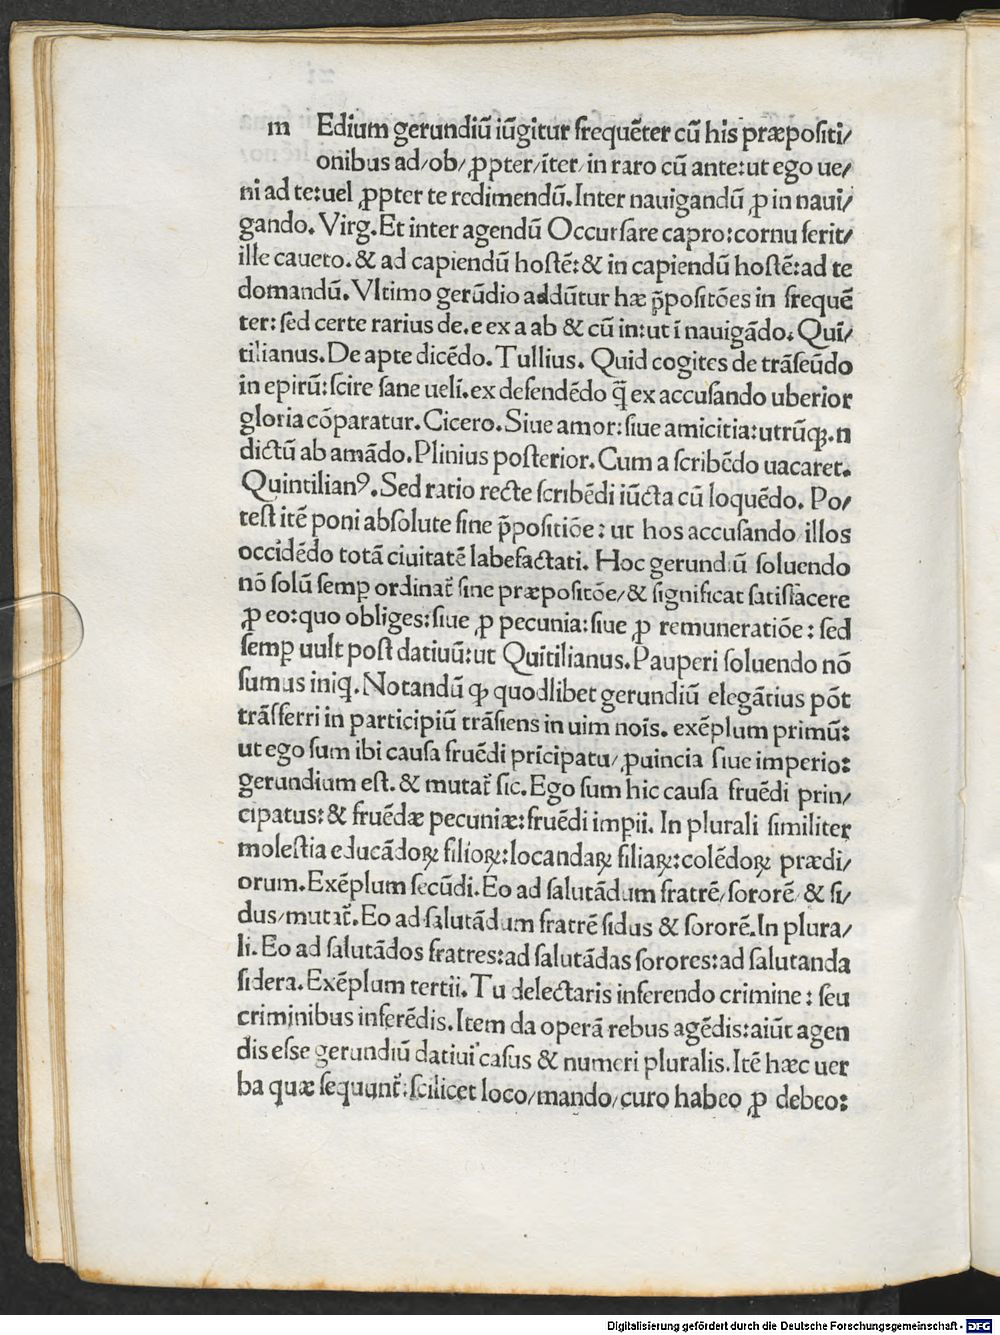 m Edium gerundiū iūgitur frequēter cū his præpositi/
onibus ad/ob/ ꝓpter/īter/in raro cū ante:ut ego ue/
ni ad te:uel ꝓpter te redimendū. Inter nauigandū ꝓ in naui/
gando. Virg. Et inter agendū Occursare capro:cornu ferit/
ille caueto. & ad capiendū hostē:& in capiendū hostē:ad te
domandū. Vltimo gerūdio addūtur hæ p̄positōes in frequē
ter: sed certe rarius de. e ex a ab & cū in:ut ī nauigādo. Qui/
tilianus. De apte dicēdo. Tullius. Quid cogites de trāseūdo
in epirū:scire sane uelī. ex defendēdo q̄ ex accusando uberior
gloria cōparatur. Cicero. Siue amor:siue amicitia:utrūꝙ. n
dictū ab amādo. Plinius posterior. Cum a scribēdo uacaret.
Quintilianꝰ. Sed ratio recte scribēdi iūcta cū loquēdo. Po/
test itē poni absolute sine p̄positiōe: ut hos accusando illos
occidēdo totā ciuitatē labefactati. Hoc gerundiū soluendo
nō solū semꝑ ordinat̄ sine præpositōe/& significat satisfacere
ꝓ eo:quo obliges:siue ꝓ pecunia:siue ꝓ remuneratiōe: sed
semꝑ uult post datiuū:ut Quītilianus. Pauperi soluendo nō
sumus iniq. Notandū ꝙ quodlibet gerundiū elegātius pōt
trāsferri in participiū trāsiens in uim nois̄. exēplum primū:
ut ego sum ibi causa fruēdi prīcipatu/ ꝓuincia siue imperio:
gerundium est. & mutat̄ sic. Ego sum hic causa fruēdi prin/
cipatus:& fruēdæ pecuniæ:fruēdi impii. In plurali similiter
molestia educādoꝝ filioꝝ:locandaꝝ filiaꝝ:colēdoꝝ prædi/
orum. Exēplum secūdi. Eo ad salutādum fratrē/sororē/ & si/
dus/mutat̄. Eo ad salutādum fratrē sidus & sororē. In plura/
li. Eo ad salutādos fratres:ad salutādas sorores:ad salutanda
sidera. Exēplum tertii. Tu delectaris inferendo crimine: seu
criminibus inferēdis. Item da operā rebus agēdis:aiūt agen
dis esse gerundiū datiui casus & numeri pluralis. Itē hæc uer
ba quæ sequunt̄:scilicet loco/mando/curo habeo ꝓ debeo:
Digitalisierung gefördert durch die Deutsche Forschungsgemeinschaft - DFG